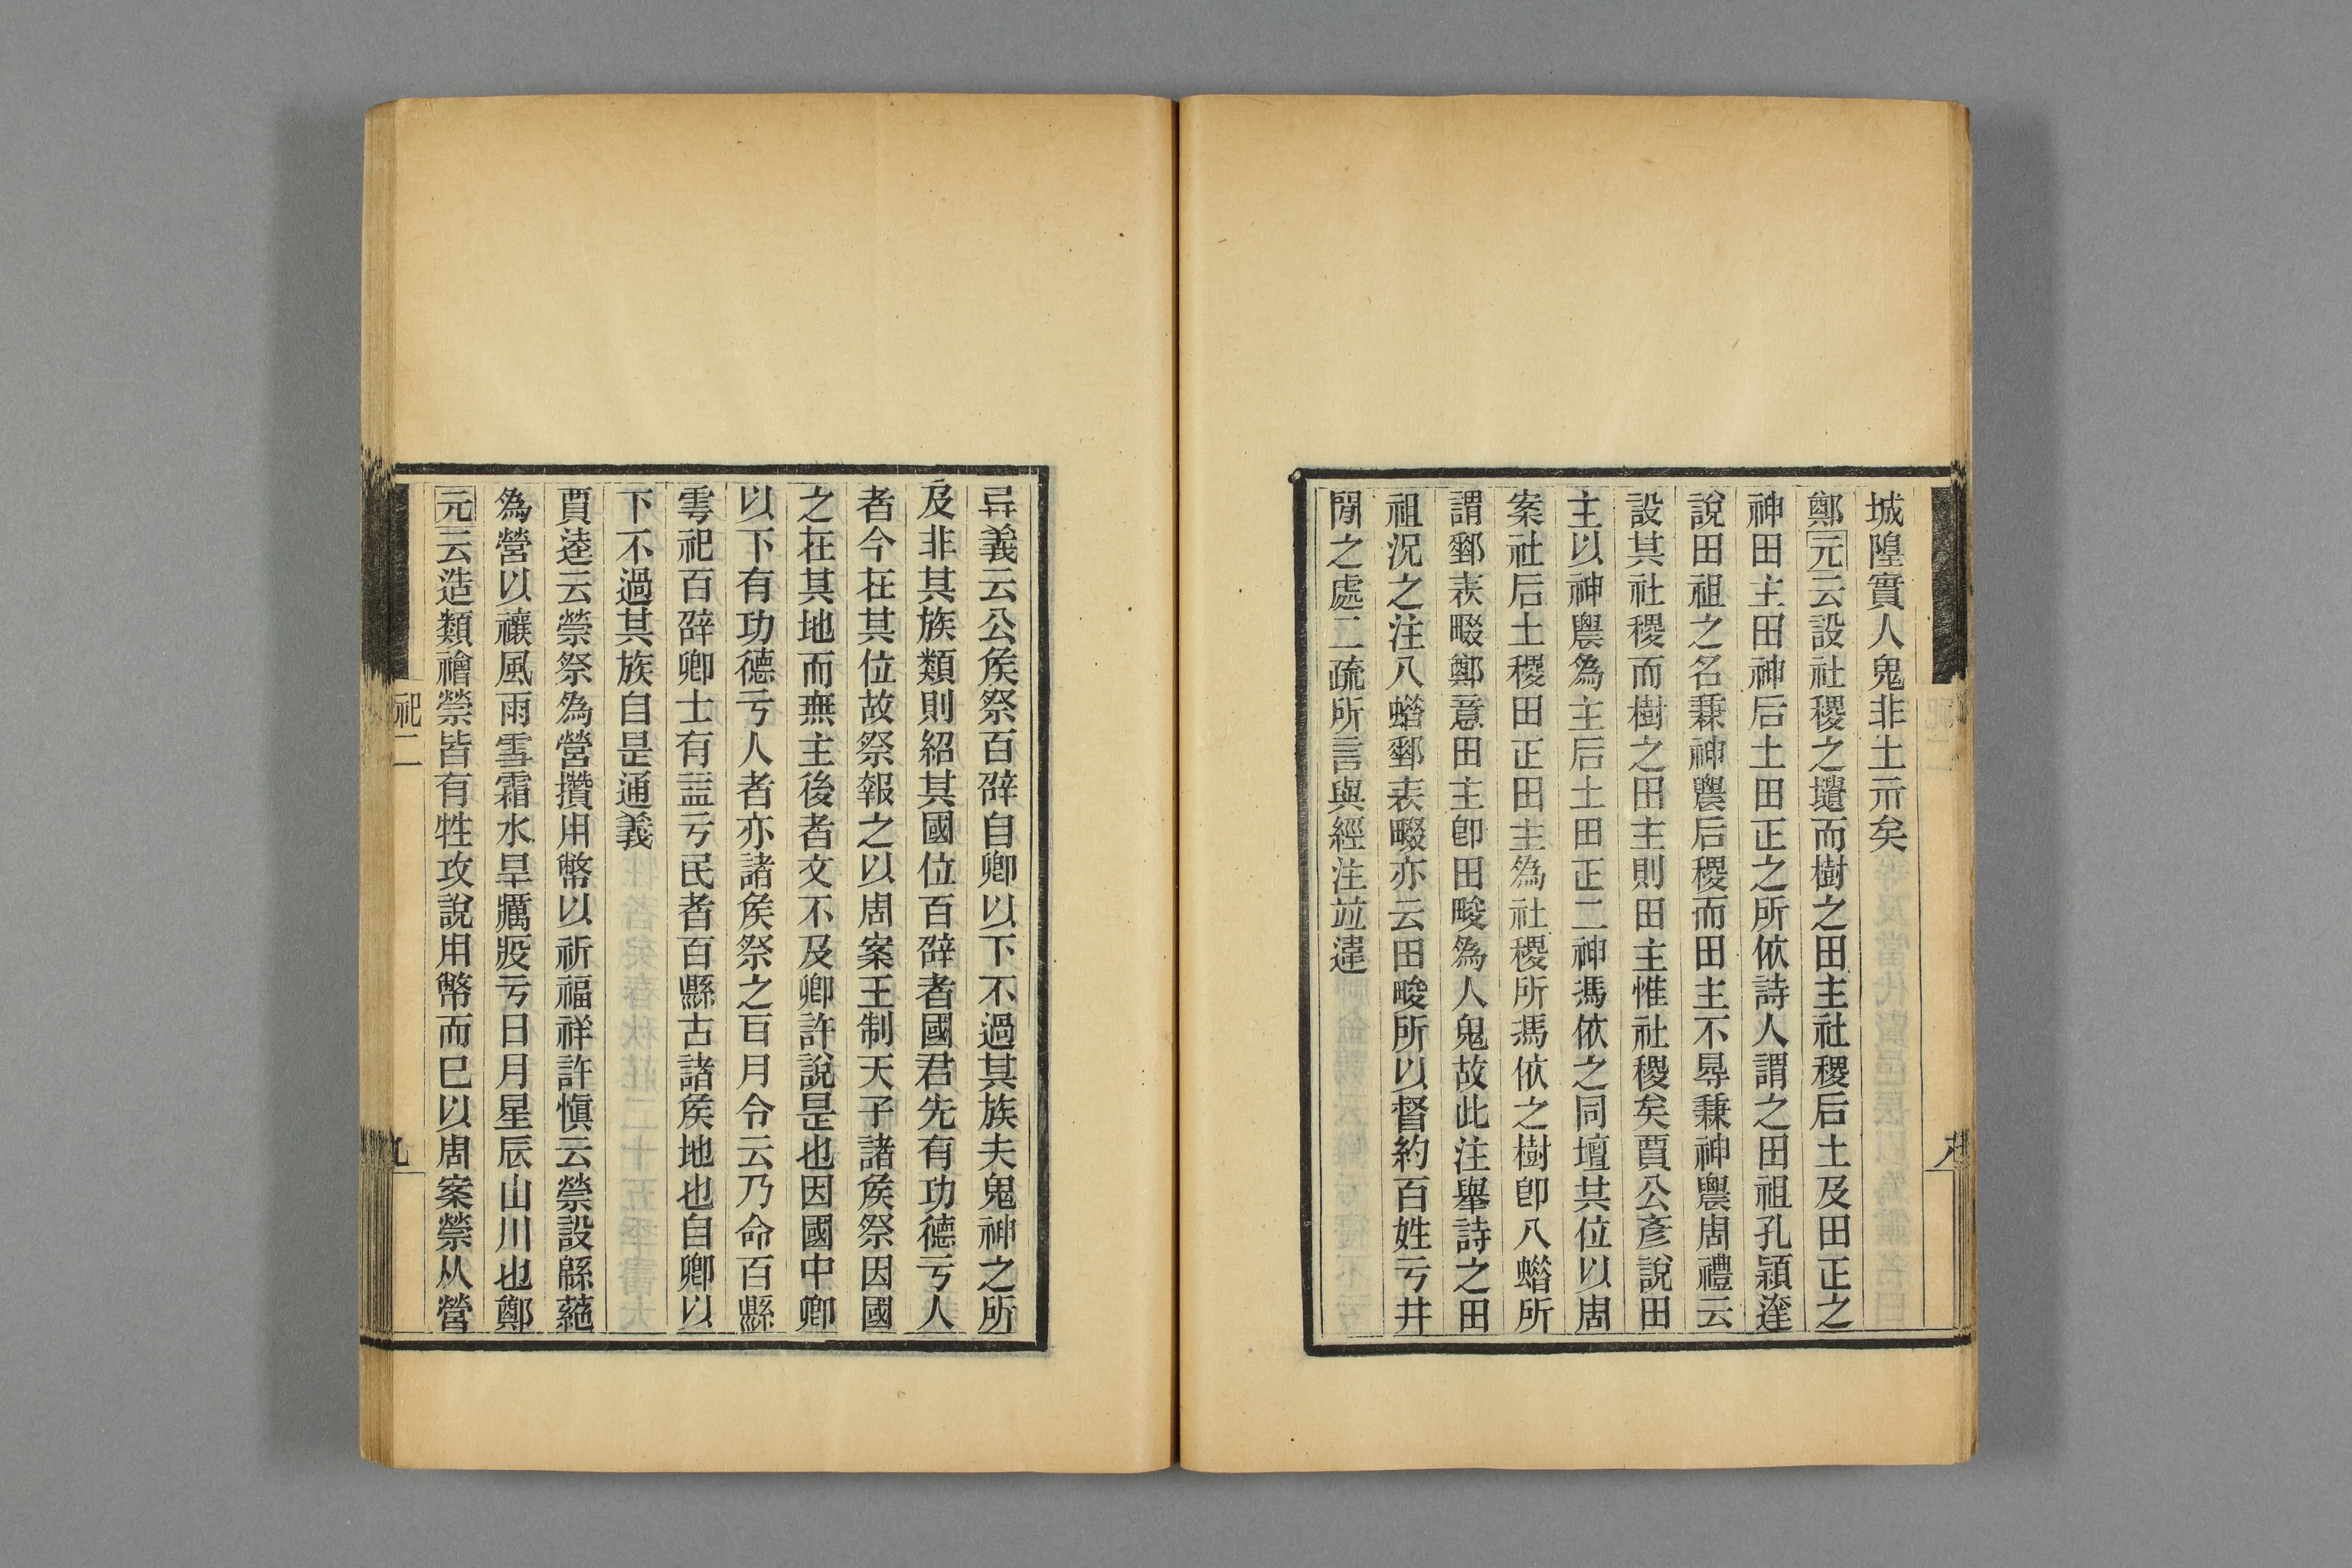 城隍實人鬼非土示矣
鄭元云設社稷之壝而樹之田主社稷后土及田正之
神田主田神后土田正之所依詩人謂之田祖孔穎達
說田祖之名兼神農后稷而田主不㝵兼神農周禮云
設其社稷而樹之田主則田主惟社稷矣賈公彥說田
主以神農為主后土田正二神馮依之同壇其位以周
案社后土稷田正田主為社稷所馮依之樹卽八蜡所
謂郵表畷鄭意田主卽田畯為人鬼故此注舉詩之田
祖況之注八蜡郵表畷亦云田畯所以督約百姓亏井
閒之處二疏所言與經注竝違
异義云公矦祭百辟自卿以下不過其族夫鬼神之所
及非其族類則紹其國位百辟者國君先有功德亏人
者今在其位故祭報之以周案王制天子諸矦祭因國
之在其地而無主後者文不及卿許說是也因國中卿
以下有功德亏人者亦諸矦祭之百月令云乃命百縣
雩祀百辟卿士有益亏民者百縣古諸矦地也自卿以
下不過其族自是通義
賈逵云禜祭為營攢用幣以祈福祥許愼云禜設緜蕝
為營以禳風雨雪霜水旱癘疫亏日月星辰山川也鄭
元云造類禬禜皆有牲攻說用幣而巳以周案禜从營
祀二
九